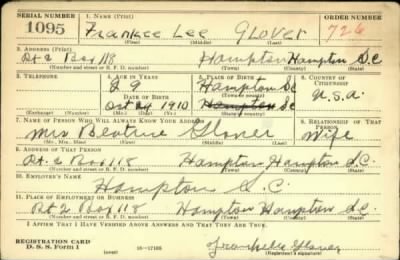 SERIAL NUMBER 1. NAME (Print) ORDER NUMBER
1095 Frankee Lee Glover 726
(First) (Middle) (Last)
2. ADDRESS (Print)
Rt 2 Box 118 Hampton Hampton S.C
(Number and street or R. F. D. number) (Town) (County) (State)
3. TELEPHONE 4. AGE IN YEARS 5. PLACE OF BIRTH 6. COUNTRY OF CITIZENSHIP
29 Hampton Sc
DATE OF BIRTH (Town or county)
Oct 24 1910 Hampton Sc U.S.A.
(Exchange) (Number) (Mo.) (Day) (Yr.) (State or country)
7. NAME OF PERSON WHO WILL ALWAYS KNOW YOUR ADDRESS 8. RELATIONSHIP OF THAT PERSON
Mrs Beatrice Glover Wife
(Mr., Mrs., Miss) (First) (Middle) (Last)
9. ADDRESS OF THAT PERSON
Rt. 2 Box 118 Hampton Hampton S.C.
(Number and street or R. F. D. number) (Town) (County) (State)
10. EMPLOYER'S NAME
Hampton S.C.
11. PLACE OF EMPLOYMENT OR BUSINESS
Rt 2 Box 118 Hampton Hampton S.C.
(Number and street or R. F. D. number) (Town) (County) (State)
I AFFIRM THAT I HAVE VERIFIED ABOVE ANSWERS AND THAT THEY ARE TRUE.
REGISTRATION CARD
D. S. S. Form 1 16-17105 Frankelee Glover
(Registrant's signature)